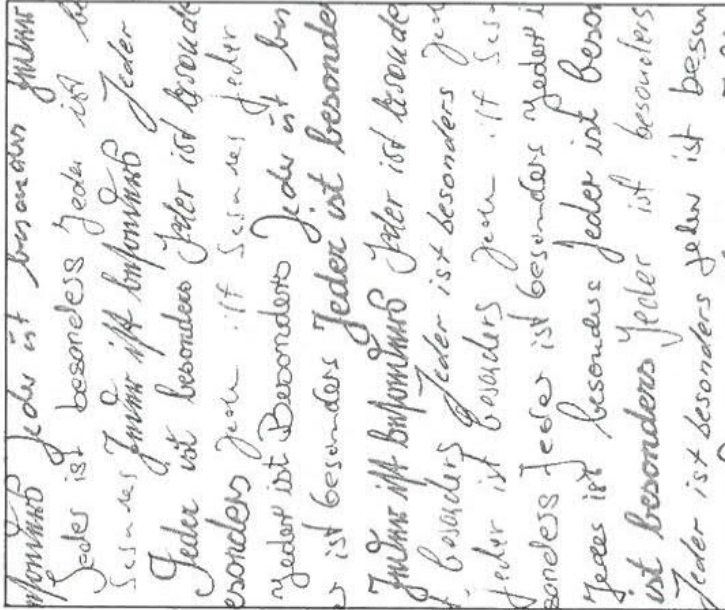 esonders Jeder ist besonders Jeder
Jeder ist besonders Jeder ist be
besonders Jeder ist besonders Jeder
Jeder ist besonders Jeder ist besonde
esonders jeder ist besonders jeder
Jeder ist Besonders Jeder ist bes
r ist besonders Jeder ist besonder
Jeder ist besonders Jeder ist besonde
t besonders Jeder ist besonders Jede
jeder ist besonders jeder ist beson
sonders Jeder ist besonders Jeder i
Jeder ist besonders Jeder ist beson
ist besonders Jeder ist besonders
Jeder ist besonders jeder ist beson